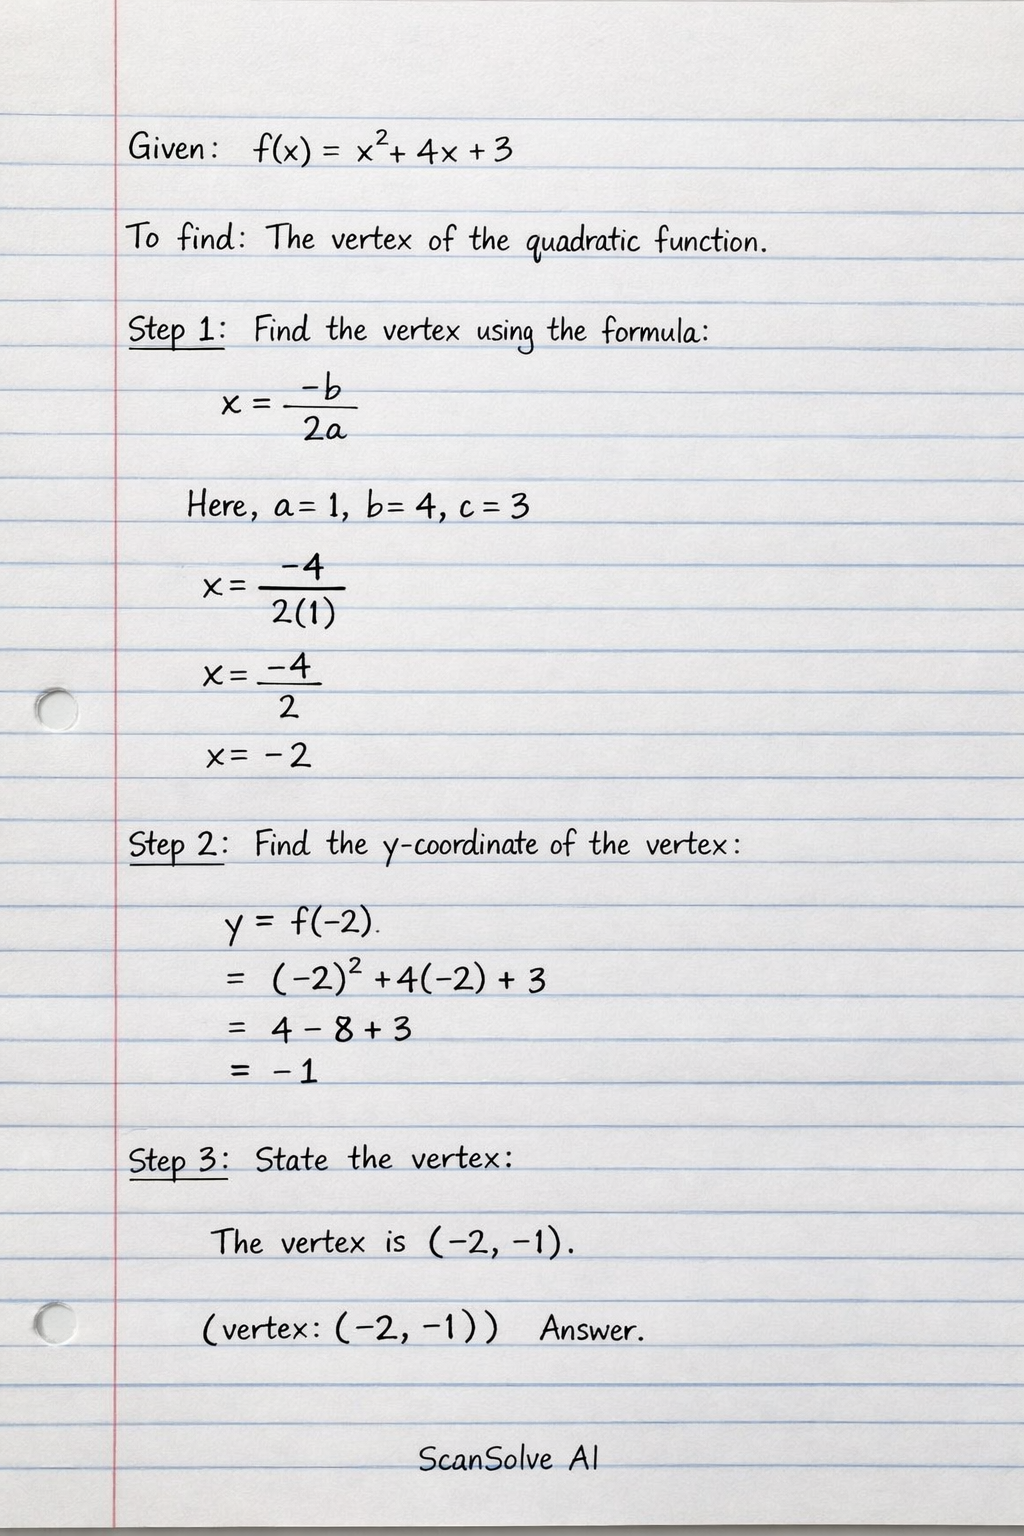 Given: f(x) = x²+ 4x + 3
To find: The vertex of the quadratic function.
Step 1: Find the vertex using the formula:
x = -b/2a
Here, a= 1, b= 4, c = 3
x = -4/2(1)
x = -4/2
x = -2
Step 2: Find the y-coordinate of the vertex:
y = f(-2).
= (-2)² +4(-2) + 3
= 4 - 8 + 3
= -1
Step 3: State the vertex:
The vertex is (-2, -1).
(vertex: (-2, -1)) Answer.
ScanSolve AI